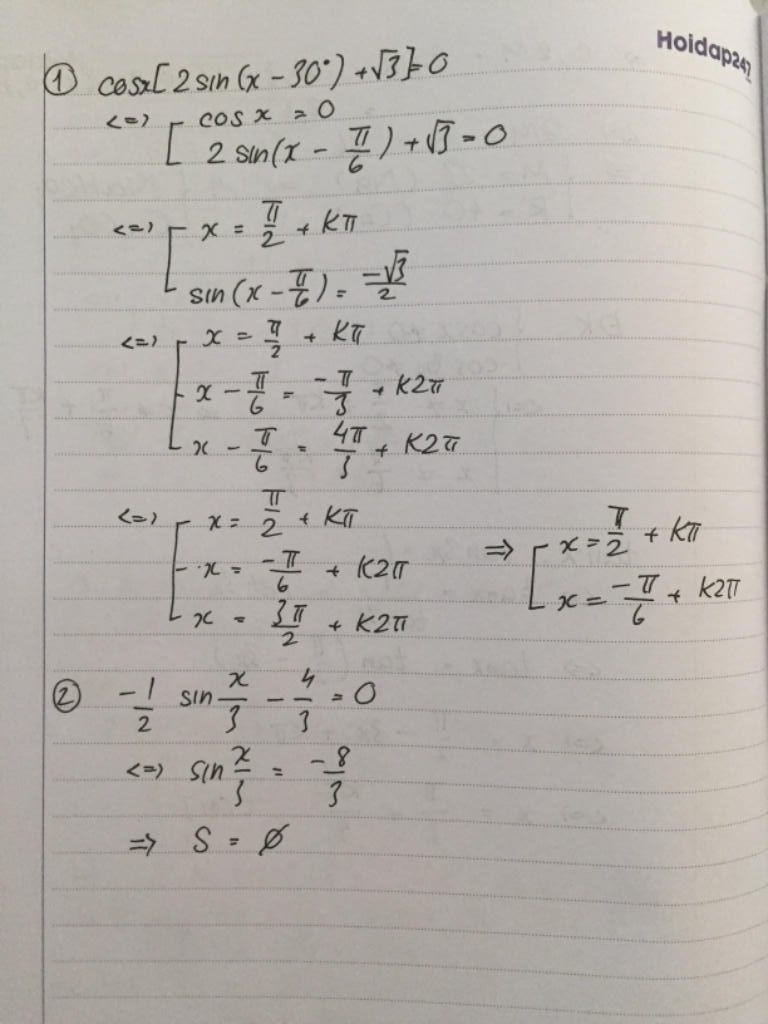 Hoidap247
① cosx[2sin(x - 30°) + √3] = 0
<=> [ cos x = 0
2 sin(x - π/6) + √3 = 0
<=> [ x = π/2 + Kπ
sin(x - π/6) = -√3/2
<=> [ x = π/2 + Kπ
x - π/6 = -π/3 + K2π
x - π/6 = 4π/3 + K2π
<=> [ x = π/2 + Kπ
x = -π/6 + K2π
x = 3π/2 + K2π
=> [ x = π/2 + Kπ
x = -π/6 + K2π
② -1/2 sin x/3 - 4/3 = 0
<=> sin x/3 = -8/3
=> S = ∅